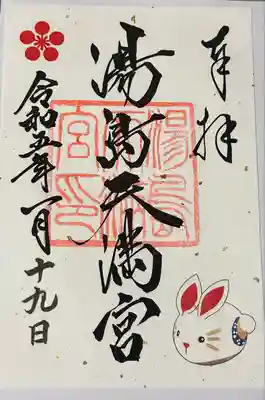 奉拝
湯島天満宮
湯島天神宮印
令和五年一月十九日